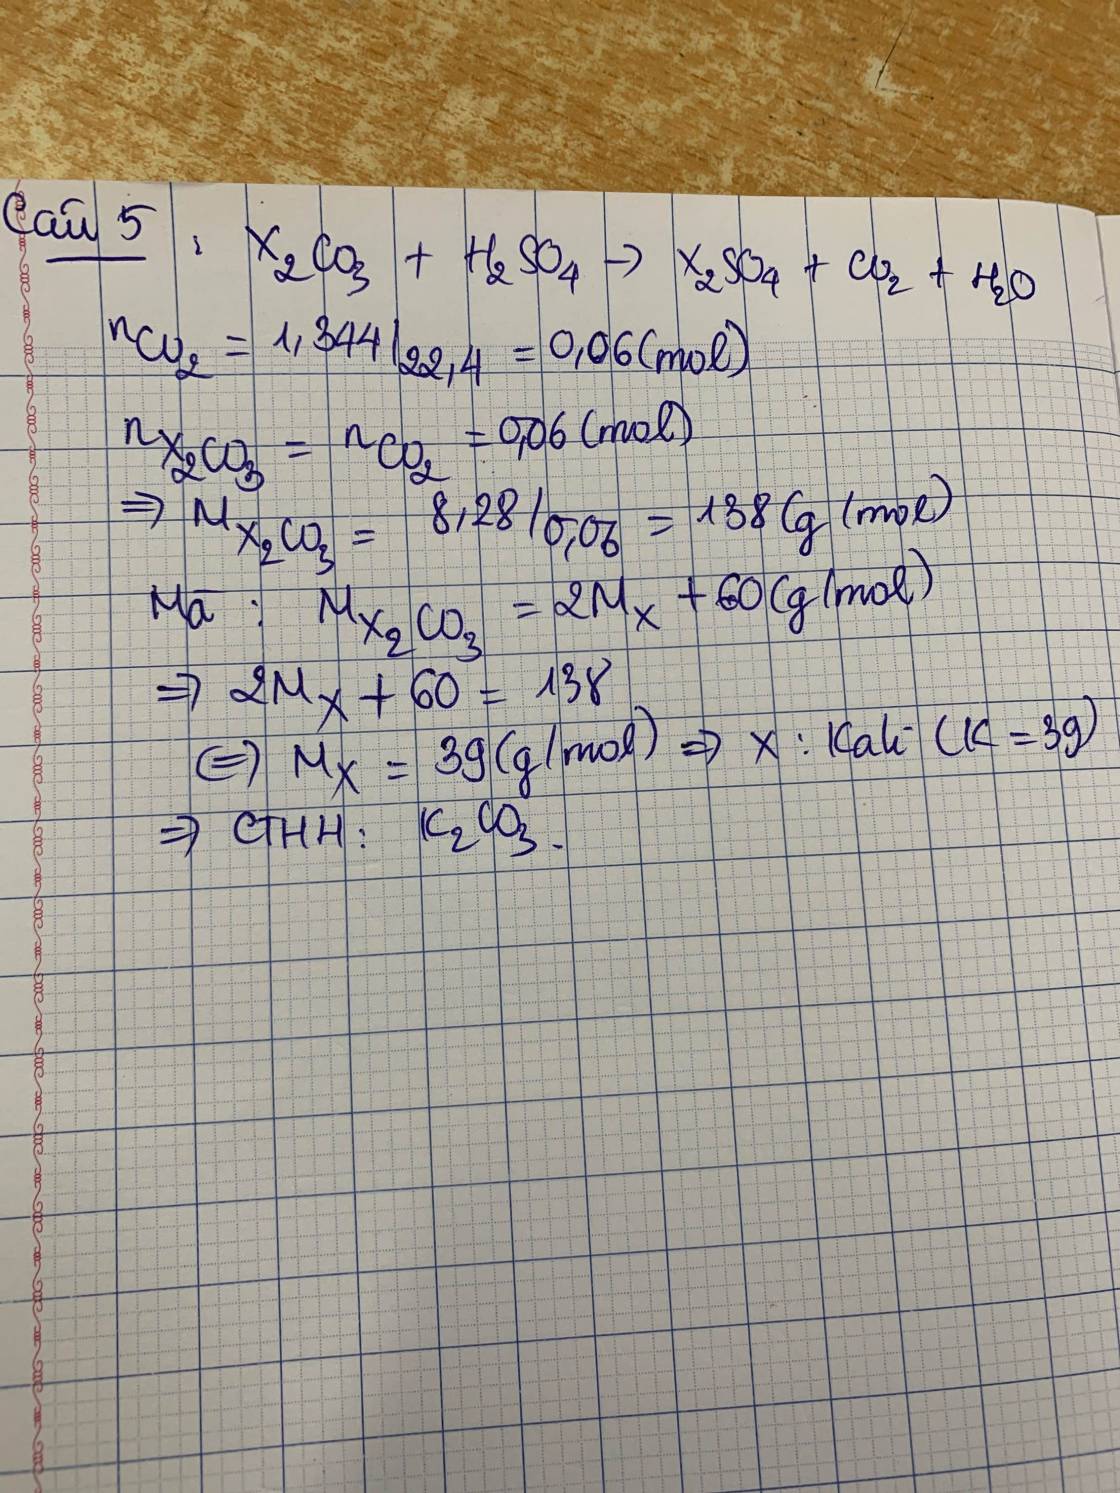 Câu 5 : X₂CO₃ + H₂SO₄ → X₂SO₄ + CO₂ + H₂O
nCO₂ = 1,344/22,4 = 0,06 (mol)
nX₂CO₃ = nCO₂ = 0,06 (mol)
⇒ MX₂CO₃ = 8,28/0,06 = 138 (g/mol)
Mà : MX₂CO₃ = 2MX + 60 (g/mol)
⇒ 2MX + 60 = 138
⇔ MX = 39 (g/mol) ⇒ X : Kali (K = 39)
⇒ CTHH : K₂CO₃.